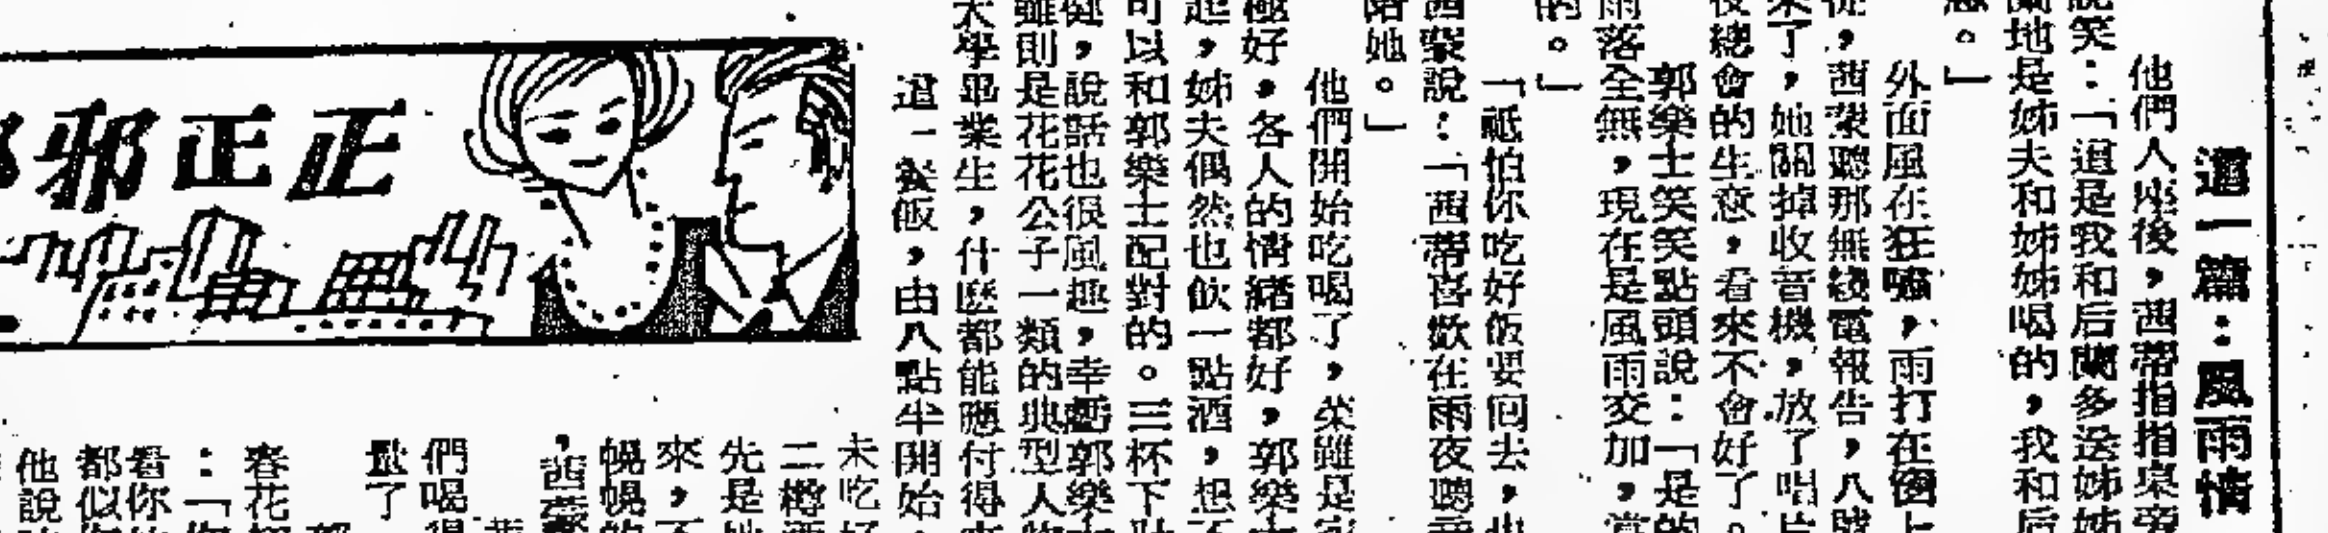 這一篇：風雨情
他們入座後，茜蒂指指桌旁
說笑：「這是我和后蘭多送姊姊
蘭地是姊夫和姊姊喝的，我和后
。」
外面風在狂嘯，雨打在窗上
，茜蒙聽那無綫電報告，八號
來了，她關掉收音機，放了唱片
夜總會的生意，看來不會好了。
郭樂士笑笑點頭說：「是的
雨落全無，現在是風雨交加，當
的。」
「祗怕你吃好飯要回去，也
茜蒙說：「茜蒂喜歡在雨夜聽音
陪她。」
他們開始吃喝了，菜雖是家
極好，各人的情緒都好，郭樂士
起，姊夫偶然也飲一點酒，想不
可以和郭樂士配對的。三杯下肚
健，說話也很風趣，幸虧郭樂士
雖則是花花公子一類的典型人物
大學畢業生，什麼都能應付得來
這一餐飯，由八點半開始，
正正邪邪
未吃好
二樽酒
先是她
來，不
幌幌的
，茜蒙
們喝得
量了
春花
：「你
看你
都似
他說